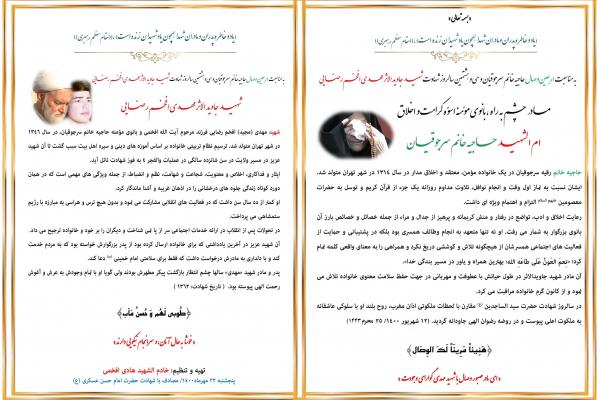 «بسمه تعالی»
(یاد و خاطره پدران و مادران شهدا همچون یاد شهیدان زنده است)، ((مقام معظم رهبری))
به مناسبت اربعین وصال حاجیه خانم سرجوقیان و سی و هشتمین سالروز شهادت شهید جاوید الاثر مهدی افخم رضایی
مادر چشم به راه، بانوی مومنه اسوه کرامت و اخلاق
ام الشهید حاجیه خانم سرجوقیان
حاجیه خانم رقیه سرجوقیان در یک خانواده مؤمن، معتقد و اخلاق مدار در سال ۱۳۱۴ در شهر تهران متولد شد.
ایشان نسبت به نماز اول وقت و انجام نوافل، تلاوت مداوم روزانه یک جزء از قرآن کریم و توسل به حضرات
معصومین علیهم السلام التزام و اهتمام ویژه ای داشت.
رعایت اخلاق و ادب، تواضع در رفتار و منش کریمانه و پرهیز از جدال و مراء از جمله خصائل و خصائص بارز آن
بانوی بزرگوار به شمار می رفت. او نه تنها متعهد به انجام وظائف همسری بود بلکه در پشتیبانی و حمایت از
فعالیت های اجتماعی همسرشان از هیچگونه تلاش و کوششی دریغ نکرد و همراهی را به معنای واقعی کلمه تمام
کرد: «نِعمَ العَونُ عَلی طاعَهِ الله» بهترین همراه و یاور در مسیر بندگی خدا».
آن مادر شهید جاویدالاثر در طول حیاتش با عطوفت و مهربانی در جهت حفظ سلامت معنوی خانواده تلاش می
نمود و از کانون گرم خانواده مراقبت می کرد.
در سالروز شهادت حضرت سید الساجدین (ع) مقارن با لحظات ملکوتی اذان مغرب، روح بلند او با سلوکی عاشقانه
به ملکوت اعلی پیوست و در روضه رضوان الهی جاودانه گردید. (۱۲ شهریور ۱۴۰۰/ ۲۵ محرم ۱۴۴۳)
﴿هَنِیئاً مَرِیئاً لَکَ الوِصال﴾
«ای مادر صبور وصال با شهید مهدی گوارای وجودت»
(یاد و خاطره پدران و مادران شهدا همچون یاد شهیدان زنده است)، ((مقام معظم رهبری))
به مناسبت اربعین وصال حاجیه خانم سرجوقیان و سی و هشتمین سالروز شهادت شهید جاوید الاثر مهدی افخم رضایی
شهید جاوید الاثر مهدی افخم رضایی
شهید مهدی (مجید) افخم رضایی فرزند مرحوم آیت الله افخمی و بانوی مؤمنه حاجیه خانم سرجوقیان، در سال ۱۳۴۶
در شهر تهران متولد شد. ترسیم نظام تربیتی خانواده بر اساس آموزه های دینی و سیره اهل بیت سبب گشت تا آن شهید
عزیز در مسیر ولایت در سن شانزده سالگی در عملیات والفجر ۴ به فوز شهادت نائل آید.
ایثار و فداکاری، اخلاص و معنویت، شجاعت و شهامت، نظم و انضباط، از جمله ویژگی های مهمی است که در همان
دوره کوتاه زندگی جلوه های درخشانی را در اذهان غریبه و آشنا ماندگار کرد.
او کمتر از ده سال سن داشت که در فعالیت های انقلابی مشارکت می نمود و بدون هیچ ترس و هراسی به مبارزه با رژیم
ستمشاهی می پرداخت.
در تحولات پس از انقلاب در ارائه خدمات اجتماعی سر از پا نمی شناخت و دیگران را بر خود و خانواده ترجیح می داد.
آن شهید عزیز در آخرین یادداشتی که برای خانواده ارسال کرده بود از پدر بزرگوارش خواسته بود که به مردم خدمت
کند و با دلداری به مادرش درخواست داشت که فقط برای سلامتی امام خمینی دعا کند.
پدر و مادر شهید مهدی، سالها چشم انتظار بازگشت پیکر مطهرش بودند ولی گویا او با تمام وجودش به عرش و آغوش
رحمت الهی پیوسته بود. ( تاریخ شهادت: ۱۳۶۲ )
﴿طُوبی لَهُم وَ حُسنُ مَآب﴾
«خوشا به حال آنان، و سرانجام نیکویی دارند»
تهیه و تنظیم: خادم الشهید هادی افخمی
پنجشنبه ۲۲ مهرماه ۱۴۰۰/ مصادف با شهادت حضرت امام حسن عسکری (ع)